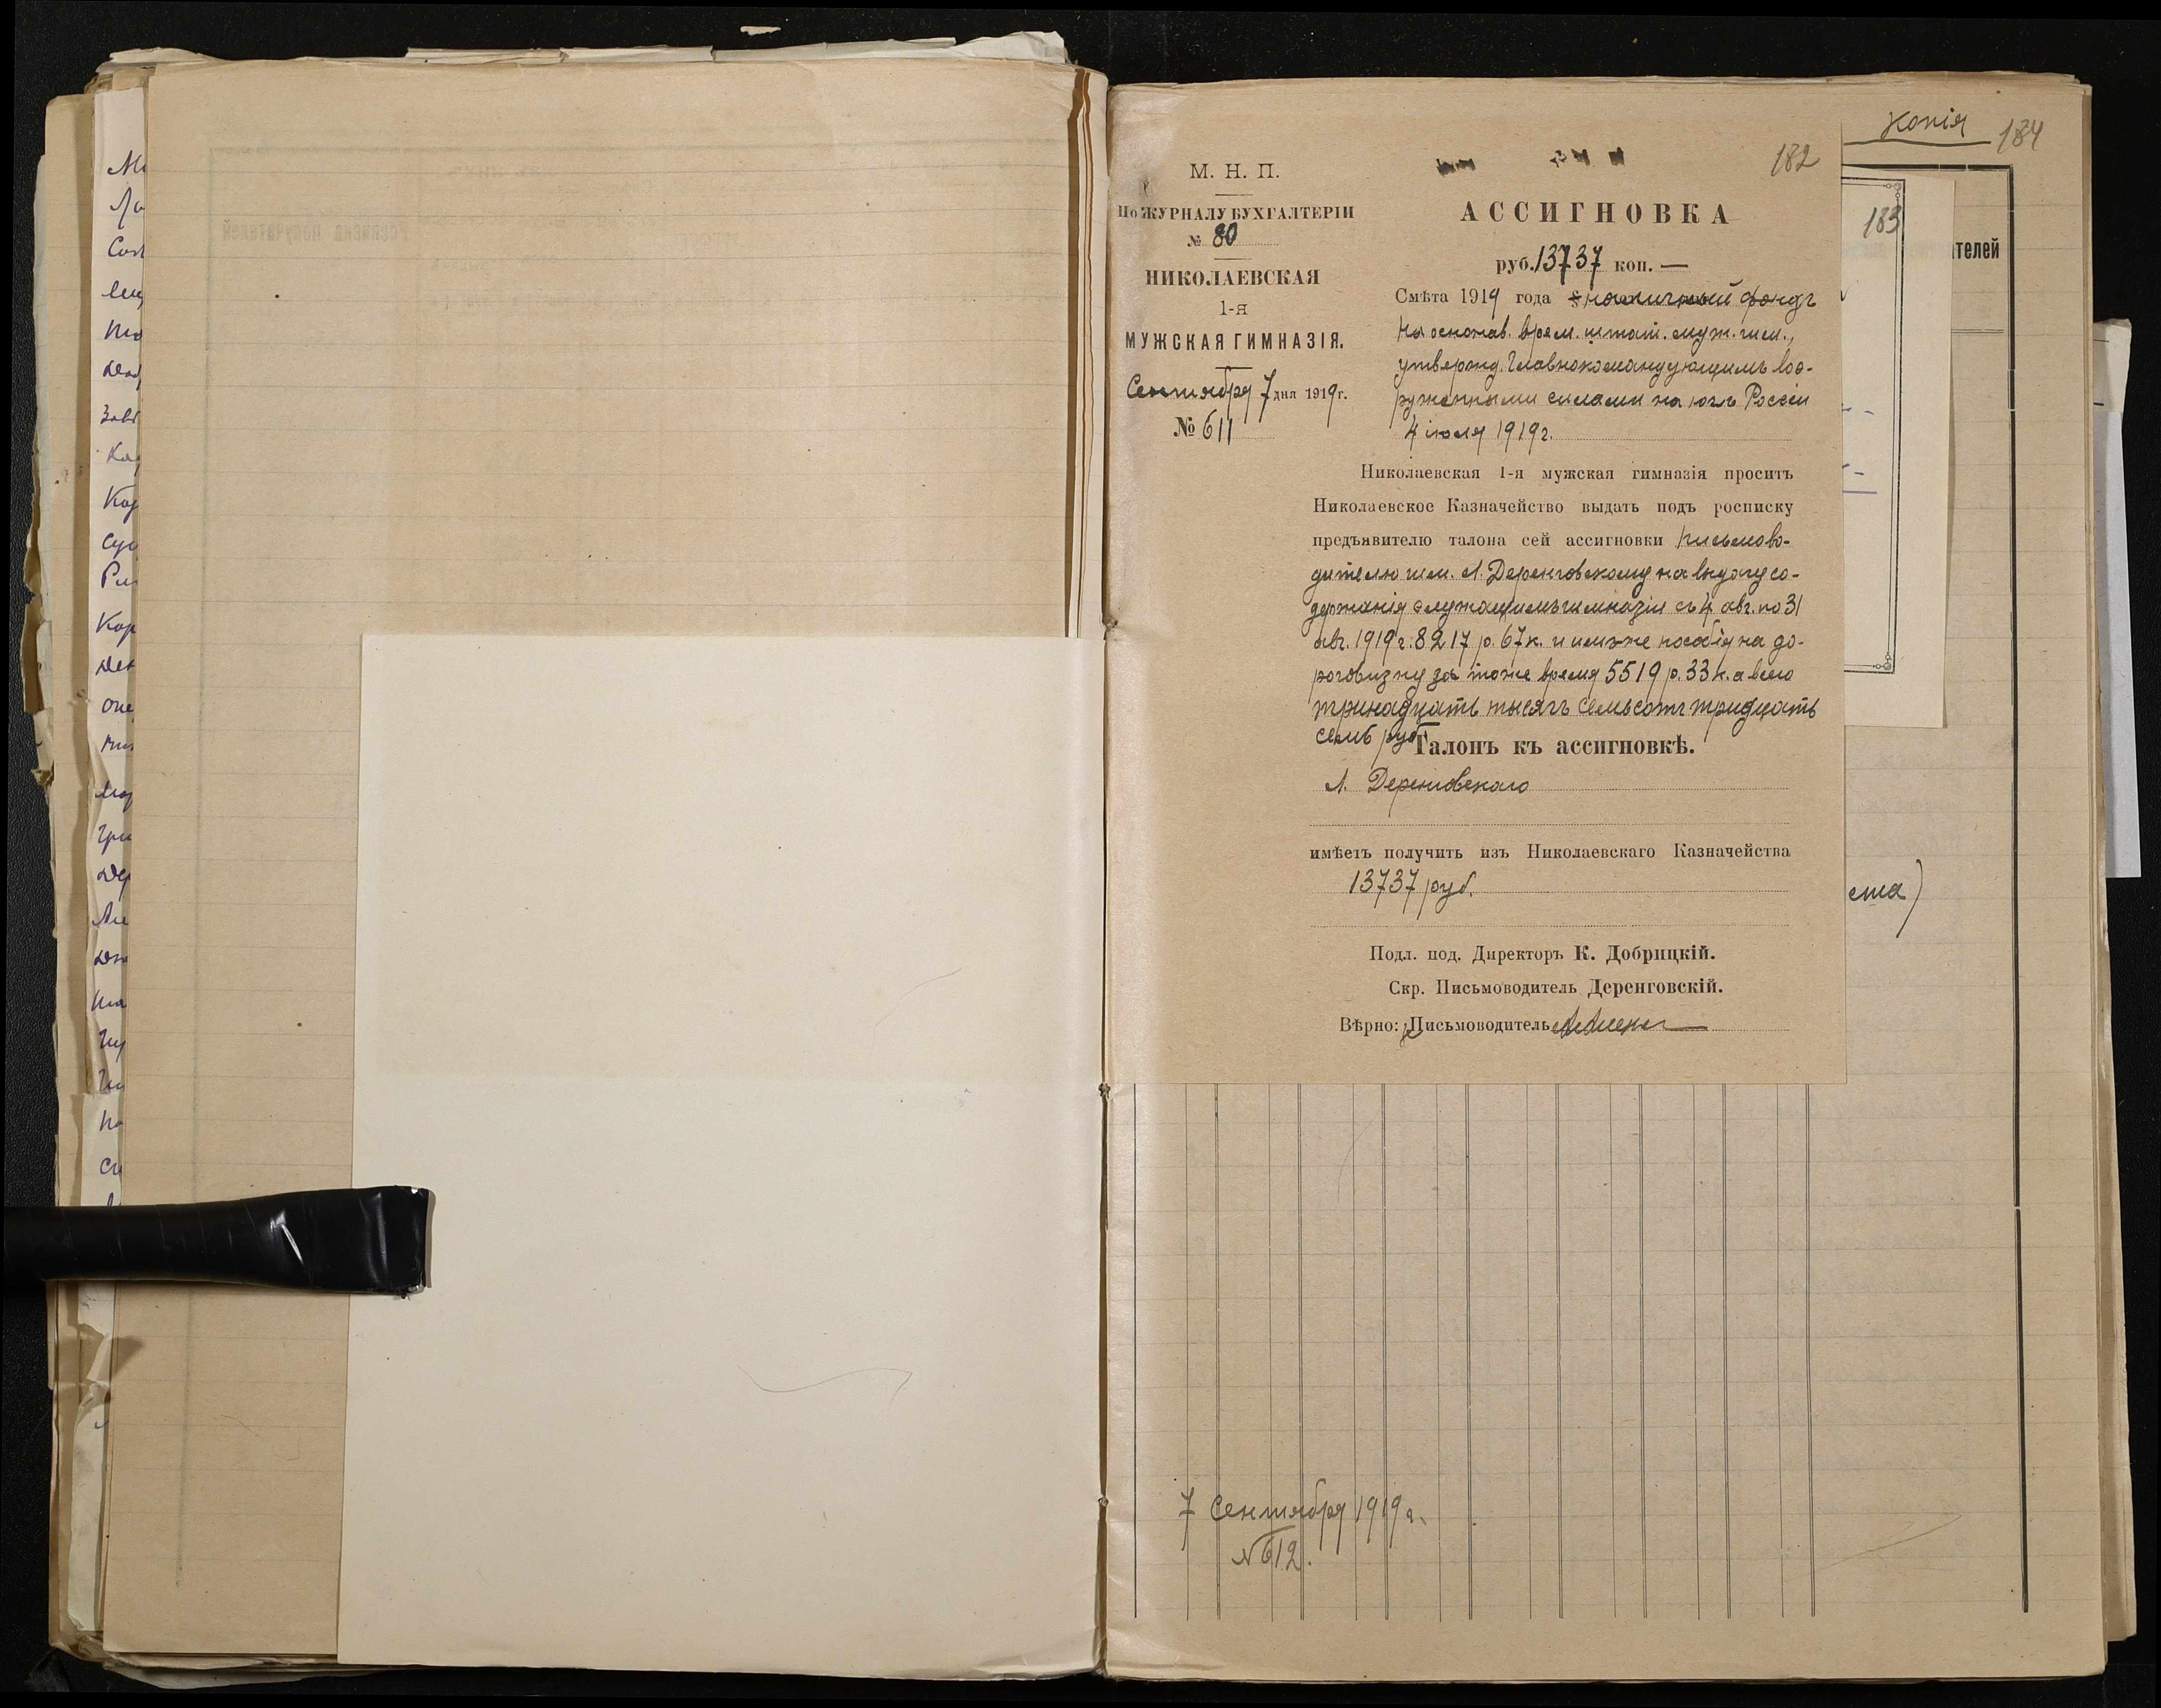 Копія
184
183
телей
182
М. Н. П.
По ЖУРНАЛУ БУХГАЛТЕРІИ
№ 80
НИКОЛАЕВСКАЯ
1-я
МУЖСКАЯ ГИМНАЗІЯ.
Сентября 7 дня 1919 г.
№ 611
АССИГНОВКА
руб. 13737 коп. —
Смѣта 1919 года § наличный фондъ
На основ. врем. штат. муж. гим.,
утвержд. Главнокомандующимъ воо-
руженными силами на югѣ Россіи
4 іюля 1919 г.
Николаевская 1-я мужская гимназія проситъ
Николаевское Казначейство выдать подъ росписку
предъявителю талона сей ассигновки письмово-
дителю гим. Л. Деренговскому на выдачу со-
держанія служащимъ гимназіи съ 4 авг. по 31
авг. 1919 г. 8217 р. 67 к. и имъ же пособія на до-
роговизну за тоже время 5519 р. 33 к. а всего
тринадцать тысячъ семьсотъ тридцать
семь руб.
Талонъ къ ассигновкѣ.
Л. Деренговскаго
имѣетъ получить изъ Николаевскаго Казначейства
13737 руб.
Подл. под. Директоръ К. Добрицкій.
Скр. Письмоводитель Деренговскій.
Вѣрно: Письмоводитель
7 Сентября 1919 г.
№ 612.